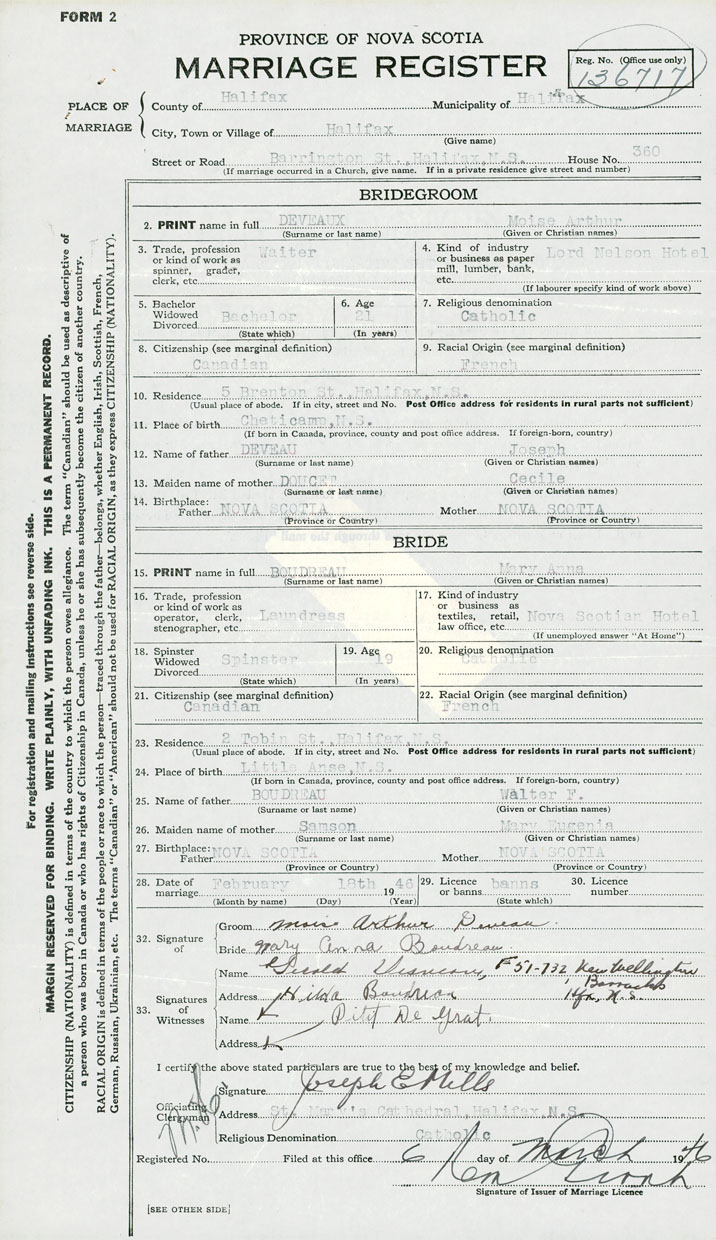 FORM 2
PROVINCE OF NOVA SCOTIA
MARRIAGE REGISTER
Reg. No. (Office use only)
136717
PLACE OF MARRIAGE
County of Halifax Municipality of Halifax
City, Town or Village of Halifax
(Give name)
Street or Road Barrington St., Halifax, N.S. House No. 360
(If marriage occurred in a Church, give name. If in a private residence give street and number)
BRIDEGROOM
2. PRINT name in full DEVEAUX Moise Arthur
(Surname or last name) (Given or Christian names)
3. Trade, profession or kind of work as spinner, grader, clerk, etc. Waiter
4. Kind of industry or business as paper mill, lumber, bank, etc. Lord Nelson Hotel
(If labourer specify kind of work above)
5. Bachelor Widowed Divorced Bachelor
(State which)
6. Age 21
(In years)
7. Religious denomination
Catholic
8. Citizenship (see marginal definition)
Canadian
9. Racial Origin (see marginal definition)
French
10. Residence 5 Brenton St., Halifax, N.S.
(Usual place of abode. If in city, street and No. Post Office address for residents in rural parts not sufficient)
11. Place of birth Cheticamp, N.S.
(If born in Canada, province, county and post office address. If foreign-born, country)
12. Name of father DEVEAU Joseph
(Surname or last name) (Given or Christian names)
13. Maiden name of mother DOUCET Cecile
(Surname or last name) (Given or Christian names)
14. Birthplace:
Father NOVA SCOTIA Mother NOVA SCOTIA
(Province or Country) (Province or Country)
BRIDE
15. PRINT name in full BOUDREAU Mary Anna
(Surname or last name) (Given or Christian names)
16. Trade, profession or kind of work as operator, clerk, stenographer, etc. Laundress
17. Kind of industry or business as textiles, retail, law office, etc. Nova Scotian Hotel
(If unemployed answer "At Home")
18. Spinster Widowed Divorced Spinster
(State which)
19. Age 19
(In years)
20. Religious denomination
Catholic
21. Citizenship (see marginal definition)
Canadian
22. Racial Origin (see marginal definition)
French
23. Residence 2 Tobin St., Halifax, N.S.
(Usual place of abode. If in city, street and No. Post Office address for residents in rural parts not sufficient)
24. Place of birth Little Anse, N.S.
(If born in Canada, province, county and post office address. If foreign-born, country)
25. Name of father BOUDREAU Walter F.
(Surname or last name) (Given or Christian names)
26. Maiden name of mother Samson Mary Eugenia
(Surname or last name) (Given or Christian names)
27. Birthplace:
Father NOVA SCOTIA Mother NOVA SCOTIA
(Province or Country) (Province or Country)
28. Date of marriage February 18th 19 46
(Month by name) (Day) (Year)
29. Licence or banns banns
(State which)
30. Licence number
32. Signature of
Groom Mois Arthur Deveau
Bride Mary Anna Boudreau
33. Signatures of Witnesses
Name F 51-732 New Wellington Barracks
Address Hilda Boudreau Hfx, N.S.
Name Petit De Grat.
Address
I certify the above stated particulars are true to the best of my knowledge and belief.
Officiating Clergyman
Signature Joseph E Mills
Address St. Mary's Cathedral, Halifax, N.S.
Religious Denomination Catholic
Registered No. Filed at this office 6 day of March 1946
Signature of Issuer of Marriage Licence
[SEE OTHER SIDE]
For registration and mailing instructions see reverse side.
MARGIN RESERVED FOR BINDING. WRITE PLAINLY, WITH UNFADING INK. THIS IS A PERMANENT RECORD.
CITIZENSHIP (NATIONALITY) is defined in terms of the country to which the person owes allegiance. The term "Canadian" should be used as descriptive of
a person who was born in Canada or who has rights of Citizenship in Canada, unless he or she has subsequently become the citizen of another country.
RACIAL ORIGIN is defined in terms of the people or race to which the person—traced through the father—belongs, whether English, Irish, Scottish, French,
German, Russian, Ukrainian, etc. The terms "Canadian" or "American" should not be used for RACIAL ORIGIN, as they express CITIZENSHIP (NATIONALITY).